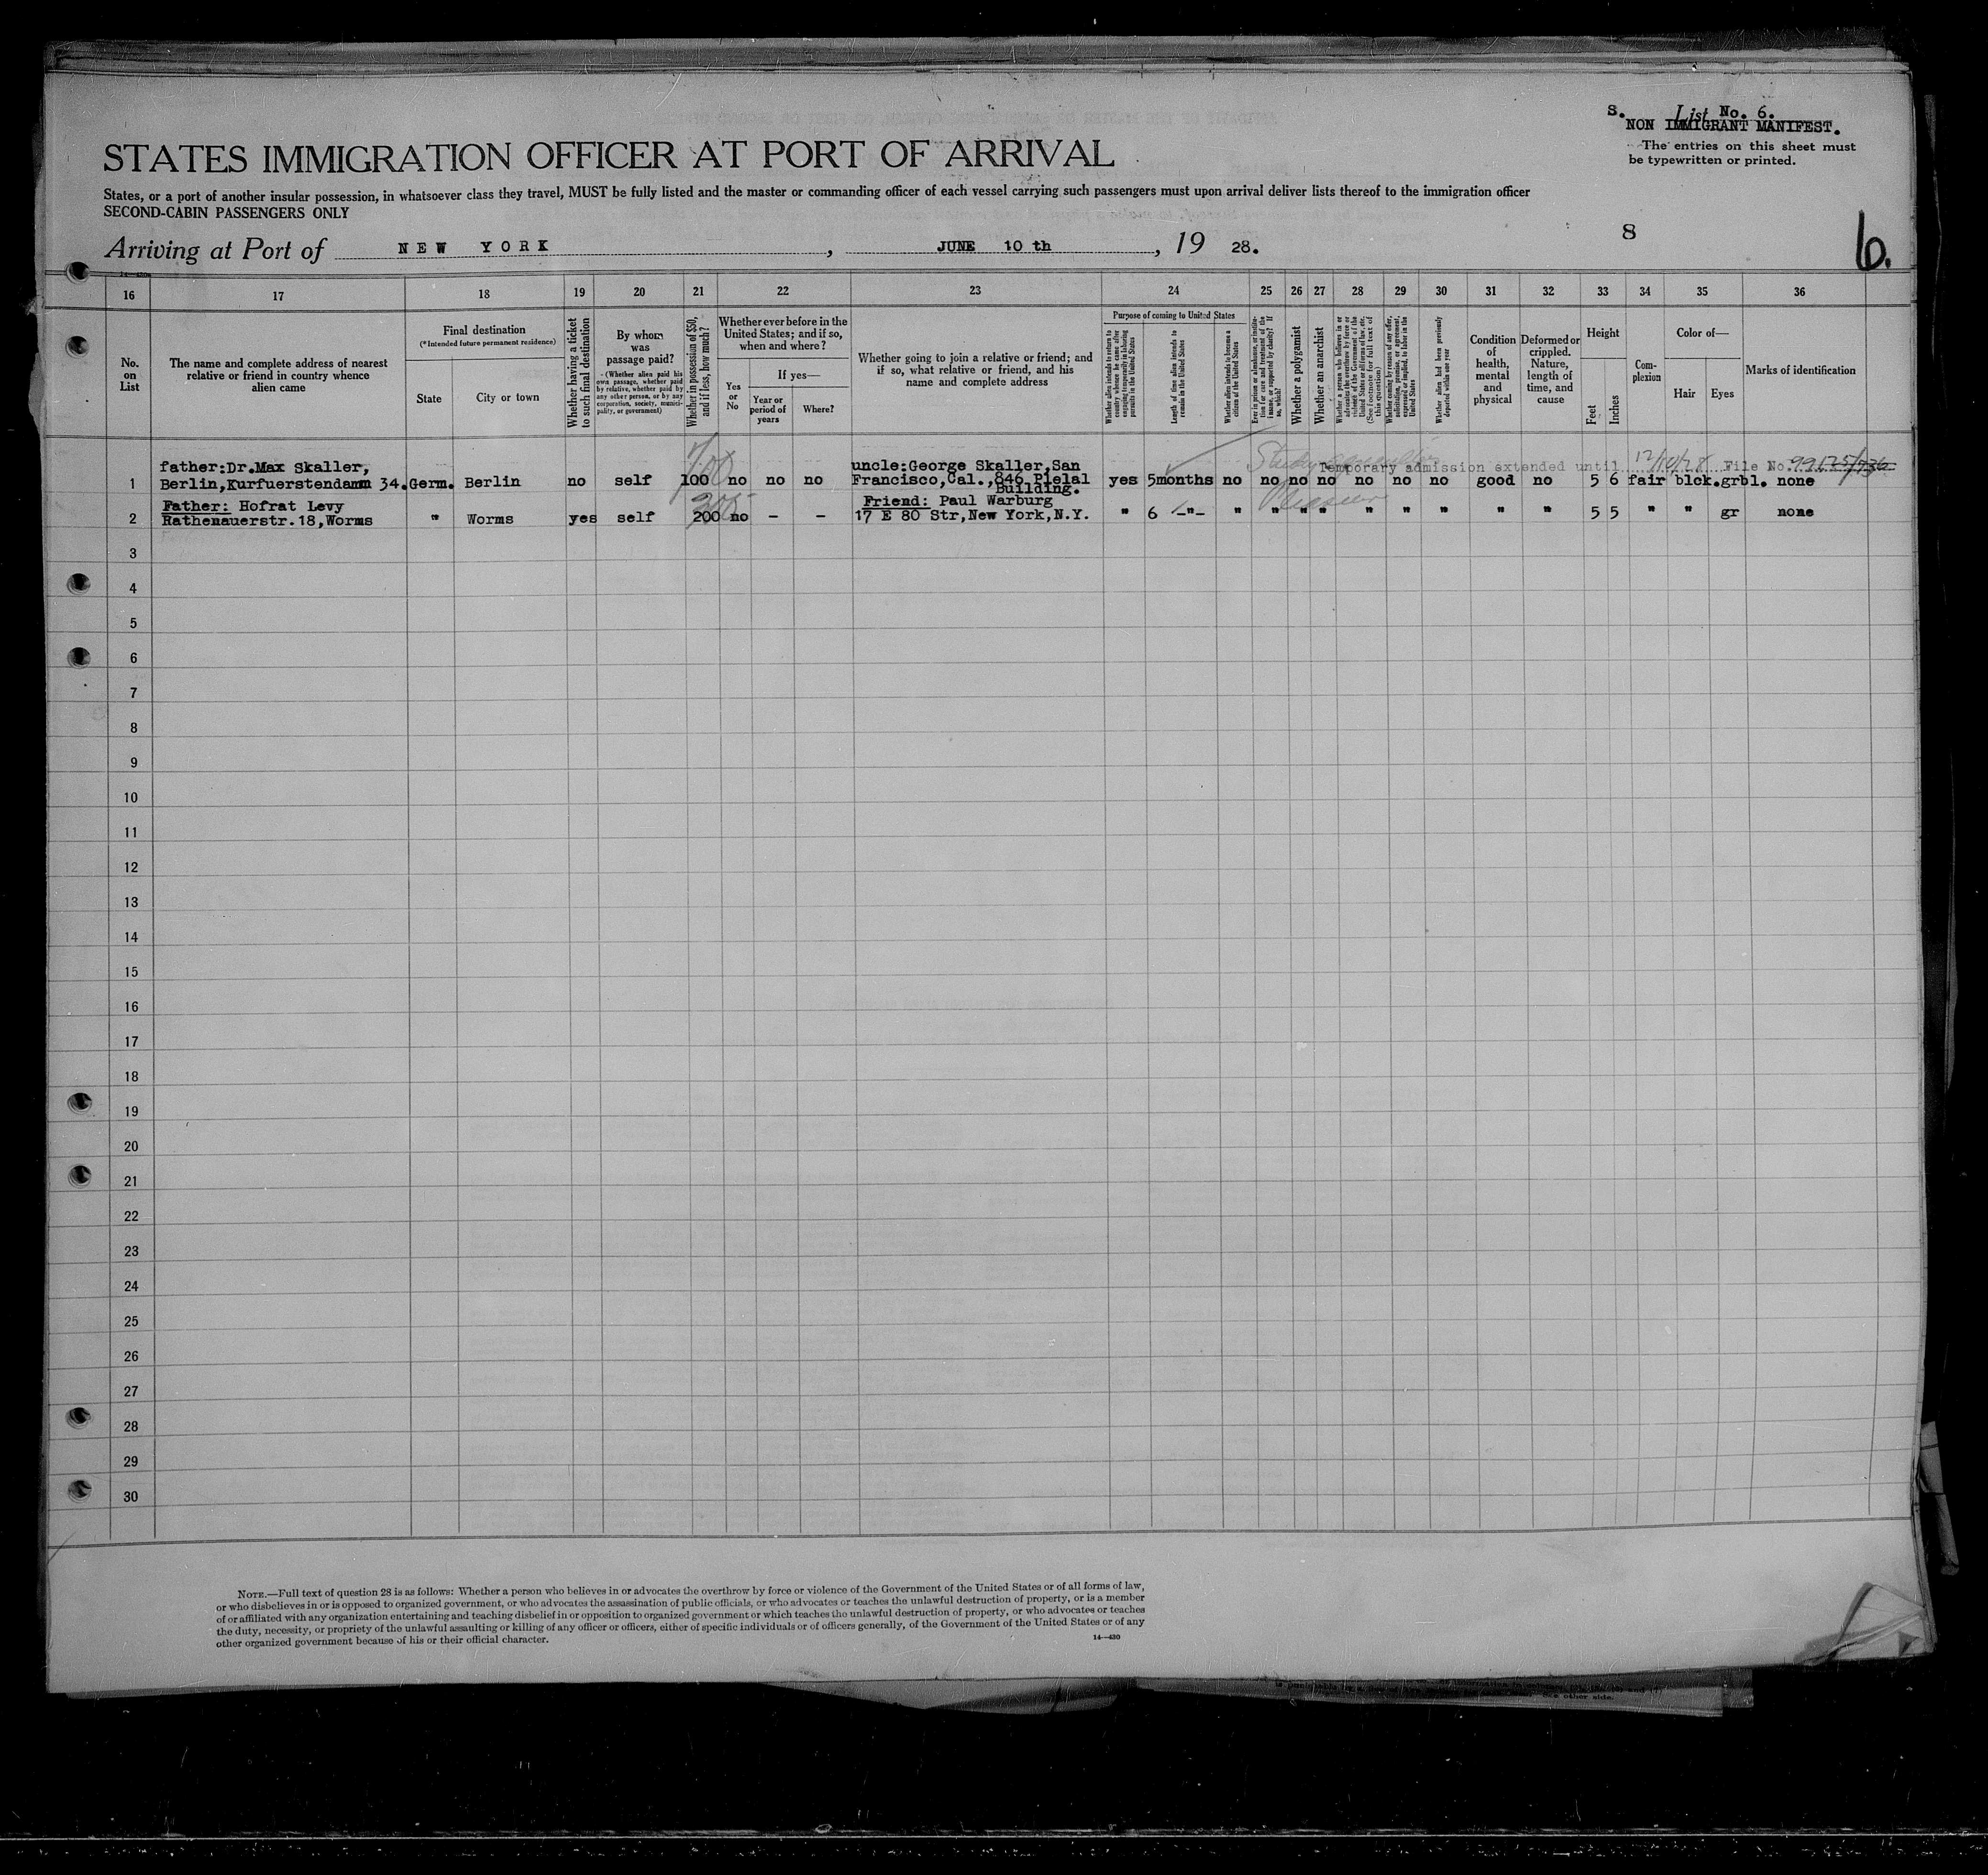 S.
List No. 6.
NON IMMIGRANT MANIFEST.
The entries on this sheet must
be typewritten or printed.
STATES IMMIGRATION OFFICER AT PORT OF ARRIVAL
States, or a port of another insular possession, in whatsoever class they travel, MUST be fully listed and the master or commanding officer of each vessel carrying such passengers must upon arrival deliver lists thereof to the immigration officer
SECOND-CABIN PASSENGERS ONLY
8
6.
Arriving at Port of NEW YORK, JUNE 10 th, 19 28.
14-430
16 17 18 19 20 21 22 23 24 25 26 27 28 29 30 31 32 33 34 35 36
No.
on
List
The name and complete address of nearest
relative or friend in country whence
alien came
Final destination
(*Intended future permanent residence)
State
City or town
Whether having a ticket
to such final destination
By whom
was
passage paid?
(Whether alien paid his
own passage, whether paid
by relative, whether paid by
any other person, or by any
corporation, society, munici-
pality, or government)
Whether in possession of $50,
and if less, how much?
Whether ever before in the
United States; and if so,
when and where?
Yes
or
No
If yes—
Year or
period of
years
Where?
Whether going to join a relative or friend; and
if so, what relative or friend, and his
name and complete address
Purpose of coming to United States
Whether alien intends to return to
country whence he came after
engaging temporarily in laboring
pursuits in the United States
Length of time alien intends to
remain in the United States
Whether alien intends to become a
citizen of the United States
Ever in prison or almshouse, or institu-
tion for care and treatment of the
insane, or supported by charity? If
so, which?
Whether a polygamist
Whether an anarchist
Whether a person who believes in or
advocates the overthrow by force or
violence of the Government of the
United States or all forms of law, etc.
(See footnote for full text of
this question)
Whether coming by reason of any offer,
solicitation, promise, or agreement,
expressed or implied, to labor in the
United States
Whether alien had been previously
deported within one year
Condition
of
health,
mental
and
physical
Deformed or
crippled.
Nature,
length of
time, and
cause
Height
Feet
Inches
Com-
plexion
Color of—
Hair
Eyes
Marks of identification
Study
Temporary admission extended until 12/10/28 File No. 99125/736
father:Dr.Max Skaller,
uncle:George Skaller,San
1 Berlin,Kurfuerstendamm 34. Germ. Berlin no self 100 no no no Francisco,Cal.,846 Pielal yes 5months no no no no no no no good no 5 6 fair blck. grbl. none
Building.
Father: Hofrat Levy
Friend: Paul Warburg
Pleasure
2 Rathenauerstr.18,Worms " Worms yes self 200 no - - 17 E 80 Str,New York,N.Y. " 6 -"- " " " " " " " " " 5 5 " " gr none
3
4
5
6
7
8
9
10
11
12
13
14
15
16
17
18
19
20
21
22
23
24
25
26
27
28
29
30
NOTE.—Full text of question 28 is as follows: Whether a person who believes in or advocates the overthrow by force or violence of the Government of the United States or of all forms of law,
or who disbelieves in or is opposed to organized government, or who advocates the assassination of public officials, or who advocates or teaches the unlawful destruction of property, or is a member
of or affiliated with any organization entertaining and teaching disbelief in or opposition to organized government or which teaches the unlawful destruction of property, or who advocates or teaches
the duty, necessity, or propriety of the unlawful assaulting or killing of any officer or officers, either of specific individuals or of officers generally, of the Government of the United States or of any
other organized government because of his or their official character.
14—430